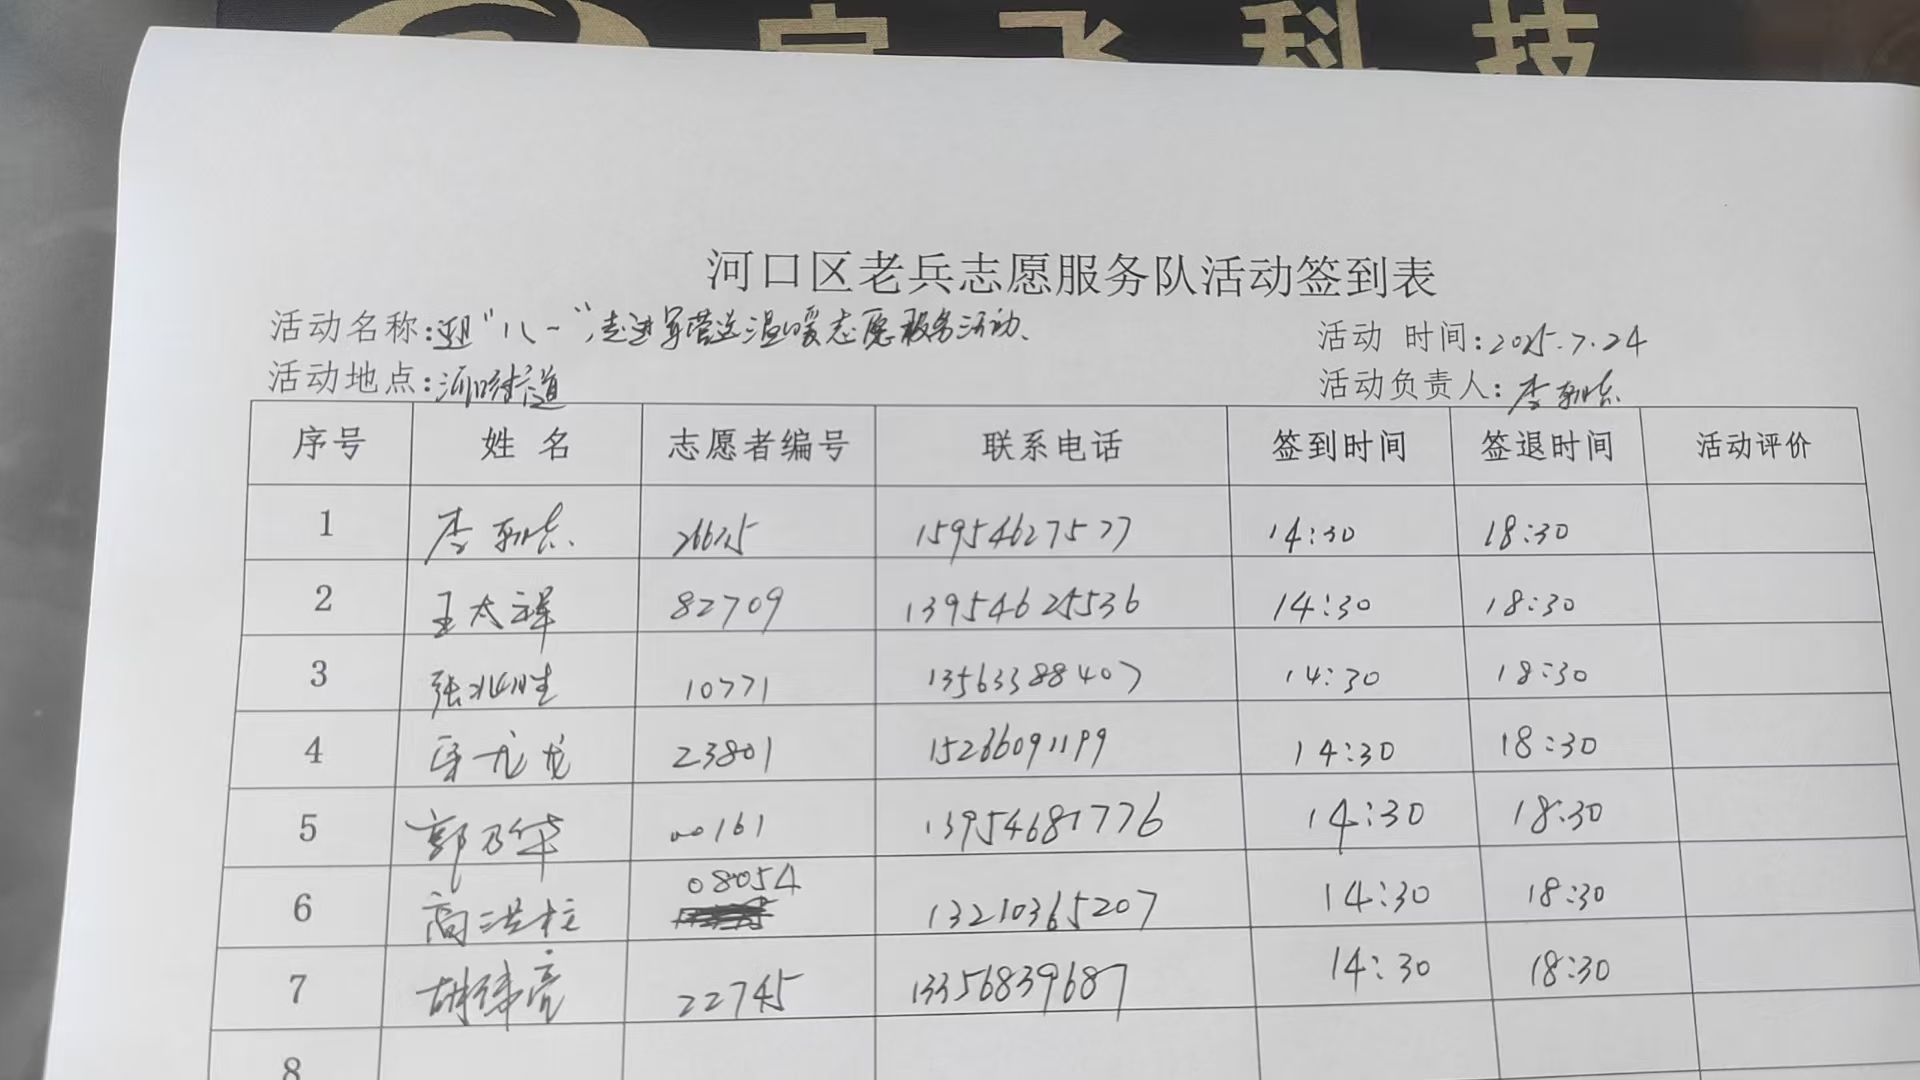 宇飞科技
河口区老兵志愿服务队活动签到表
活动名称:迎"八一",走进军营送温暖志愿服务活动、
活动 时间:2025.7.24
活动地点:河口街道
活动负责人:李
序号 姓名 志愿者编号 联系电话 签到时间 签退时间 活动评价
1 李 15954627577 14:30 18:30
2 王太祥 82709 13954625536 14:30 18:30
3 张兆胜 10771 13563388407 14:30 18:30
4 龙 23801 15266091199 14:30 18:30
5 郭乃华 00161 13954681776 14:30 18:30
6 高洪柱 08054 13210365207 14:30 18:30
7 胡 亮 22745 13356839687 14:30 18:30
8